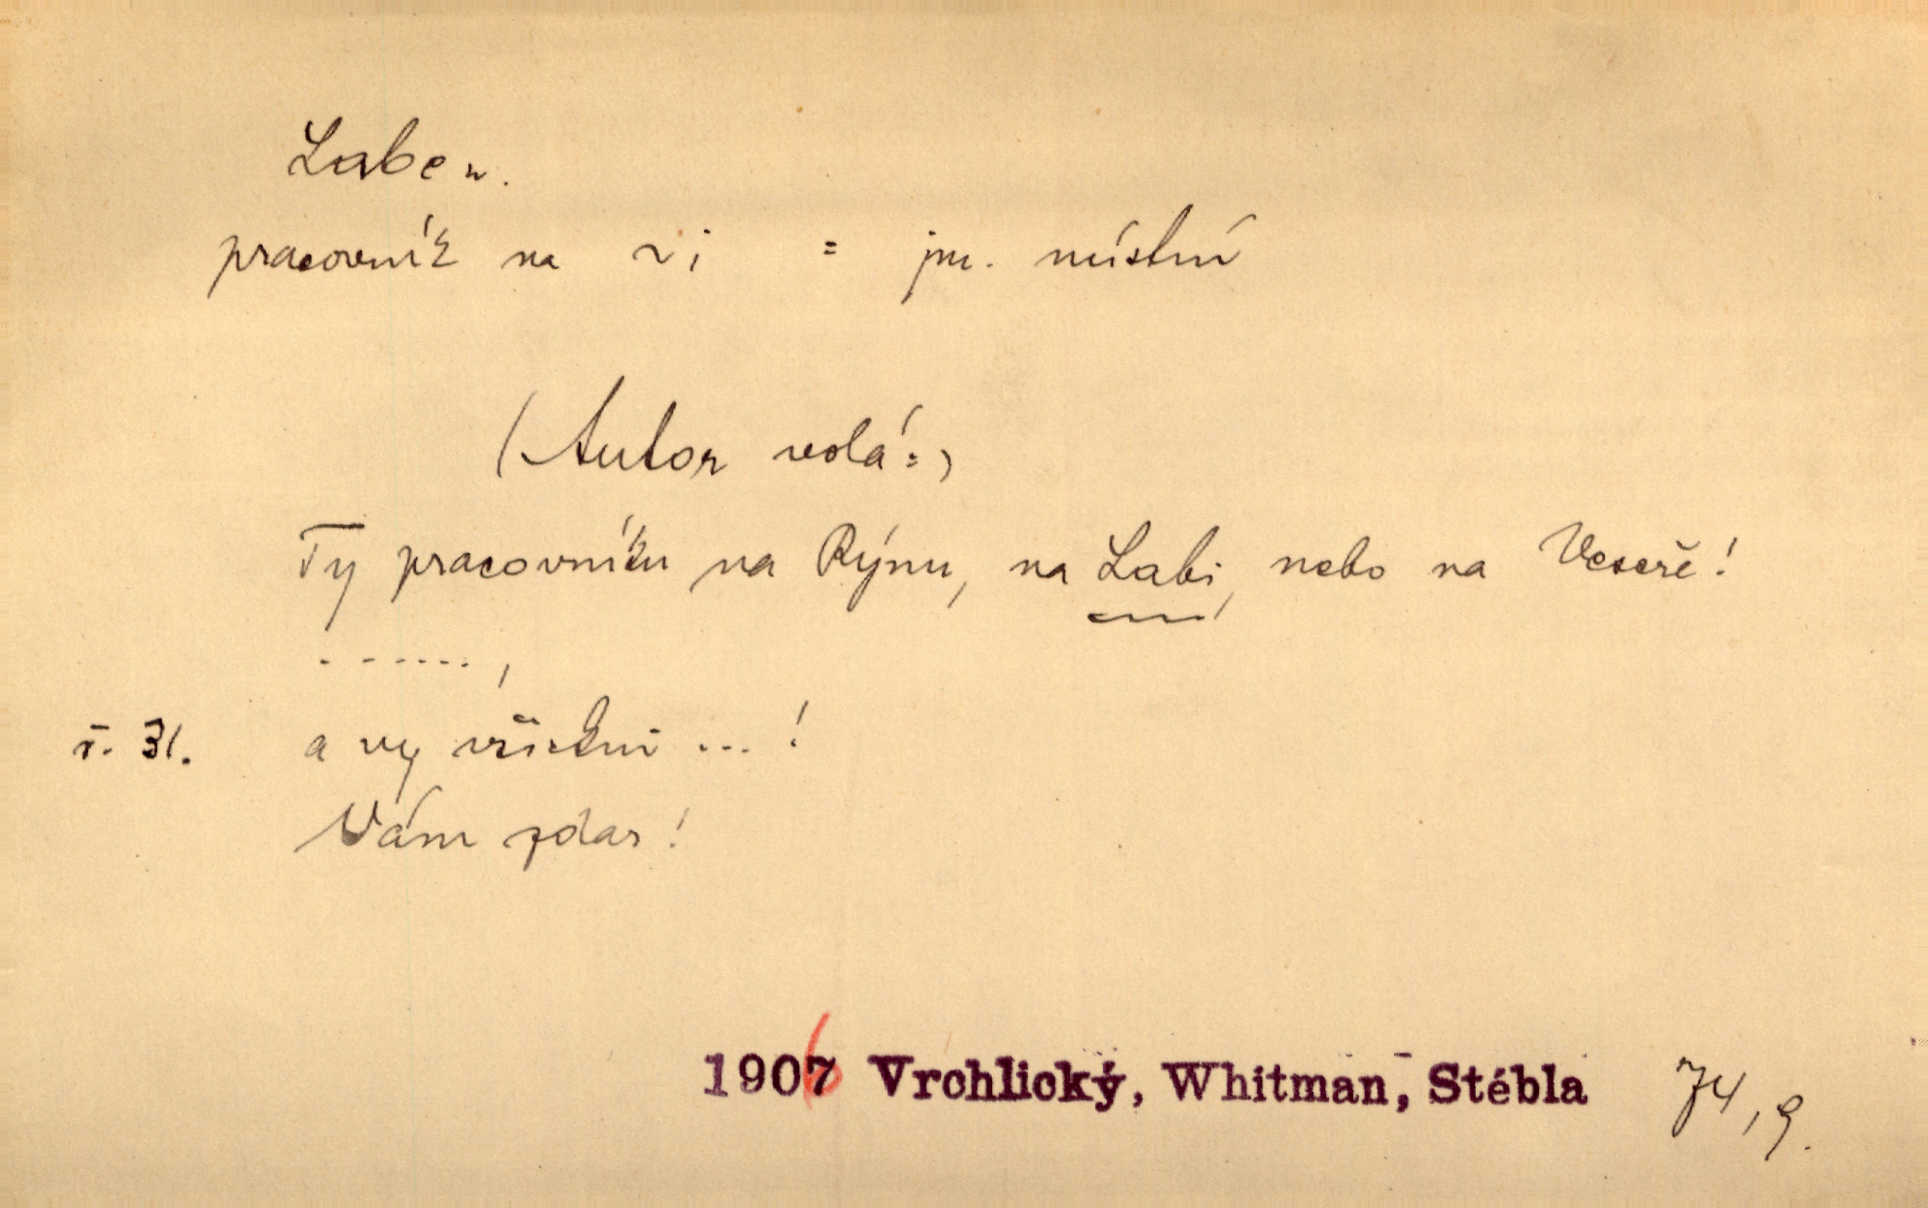 Labe n.
pracovník na ~i = jm. místní
(Autor volá:)
Ty pracovníku na Rýnu, na Labi, nebo na Veseře!
. - - . . . . ,
ř. 31. a vy všickni ... !
Vám zdar!
1906 Vrchlický, Whitman, Stébla 74,9.